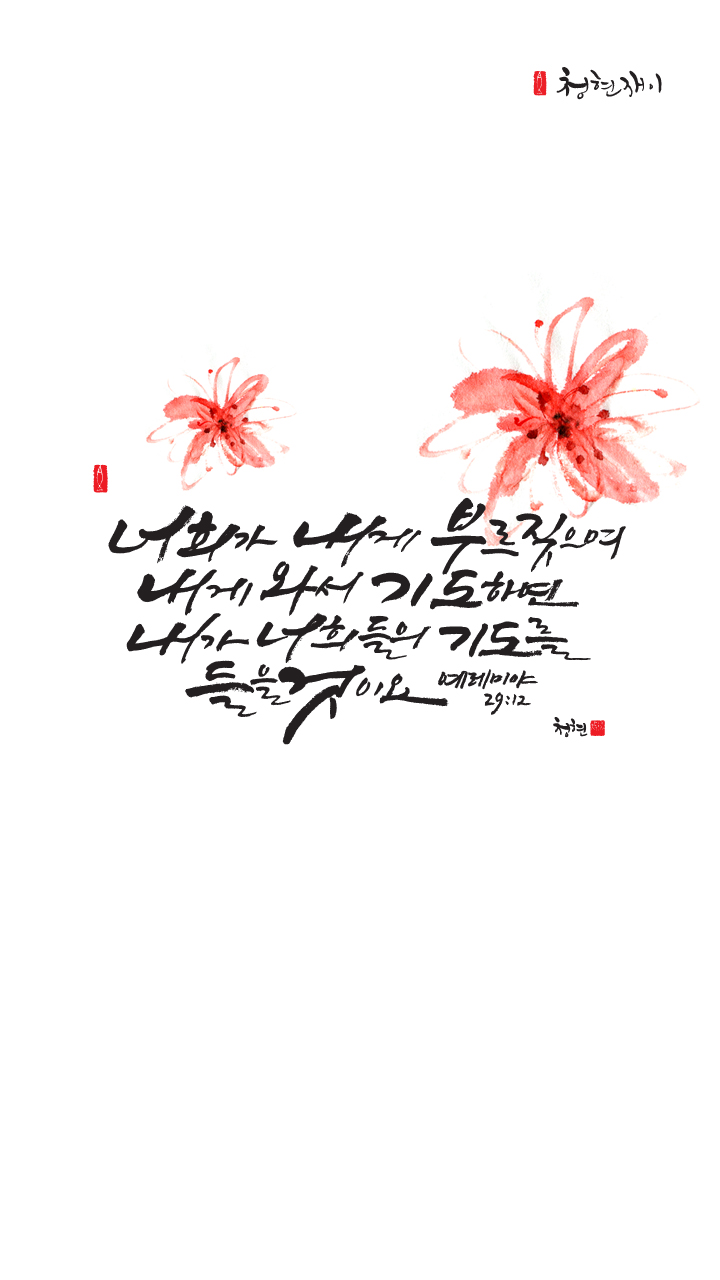 청현재이
너희가 내게 부르짖으며
내게 와서 기도하면
내가 너희들의 기도를
들을 것이요 예레미야
29:12
청현